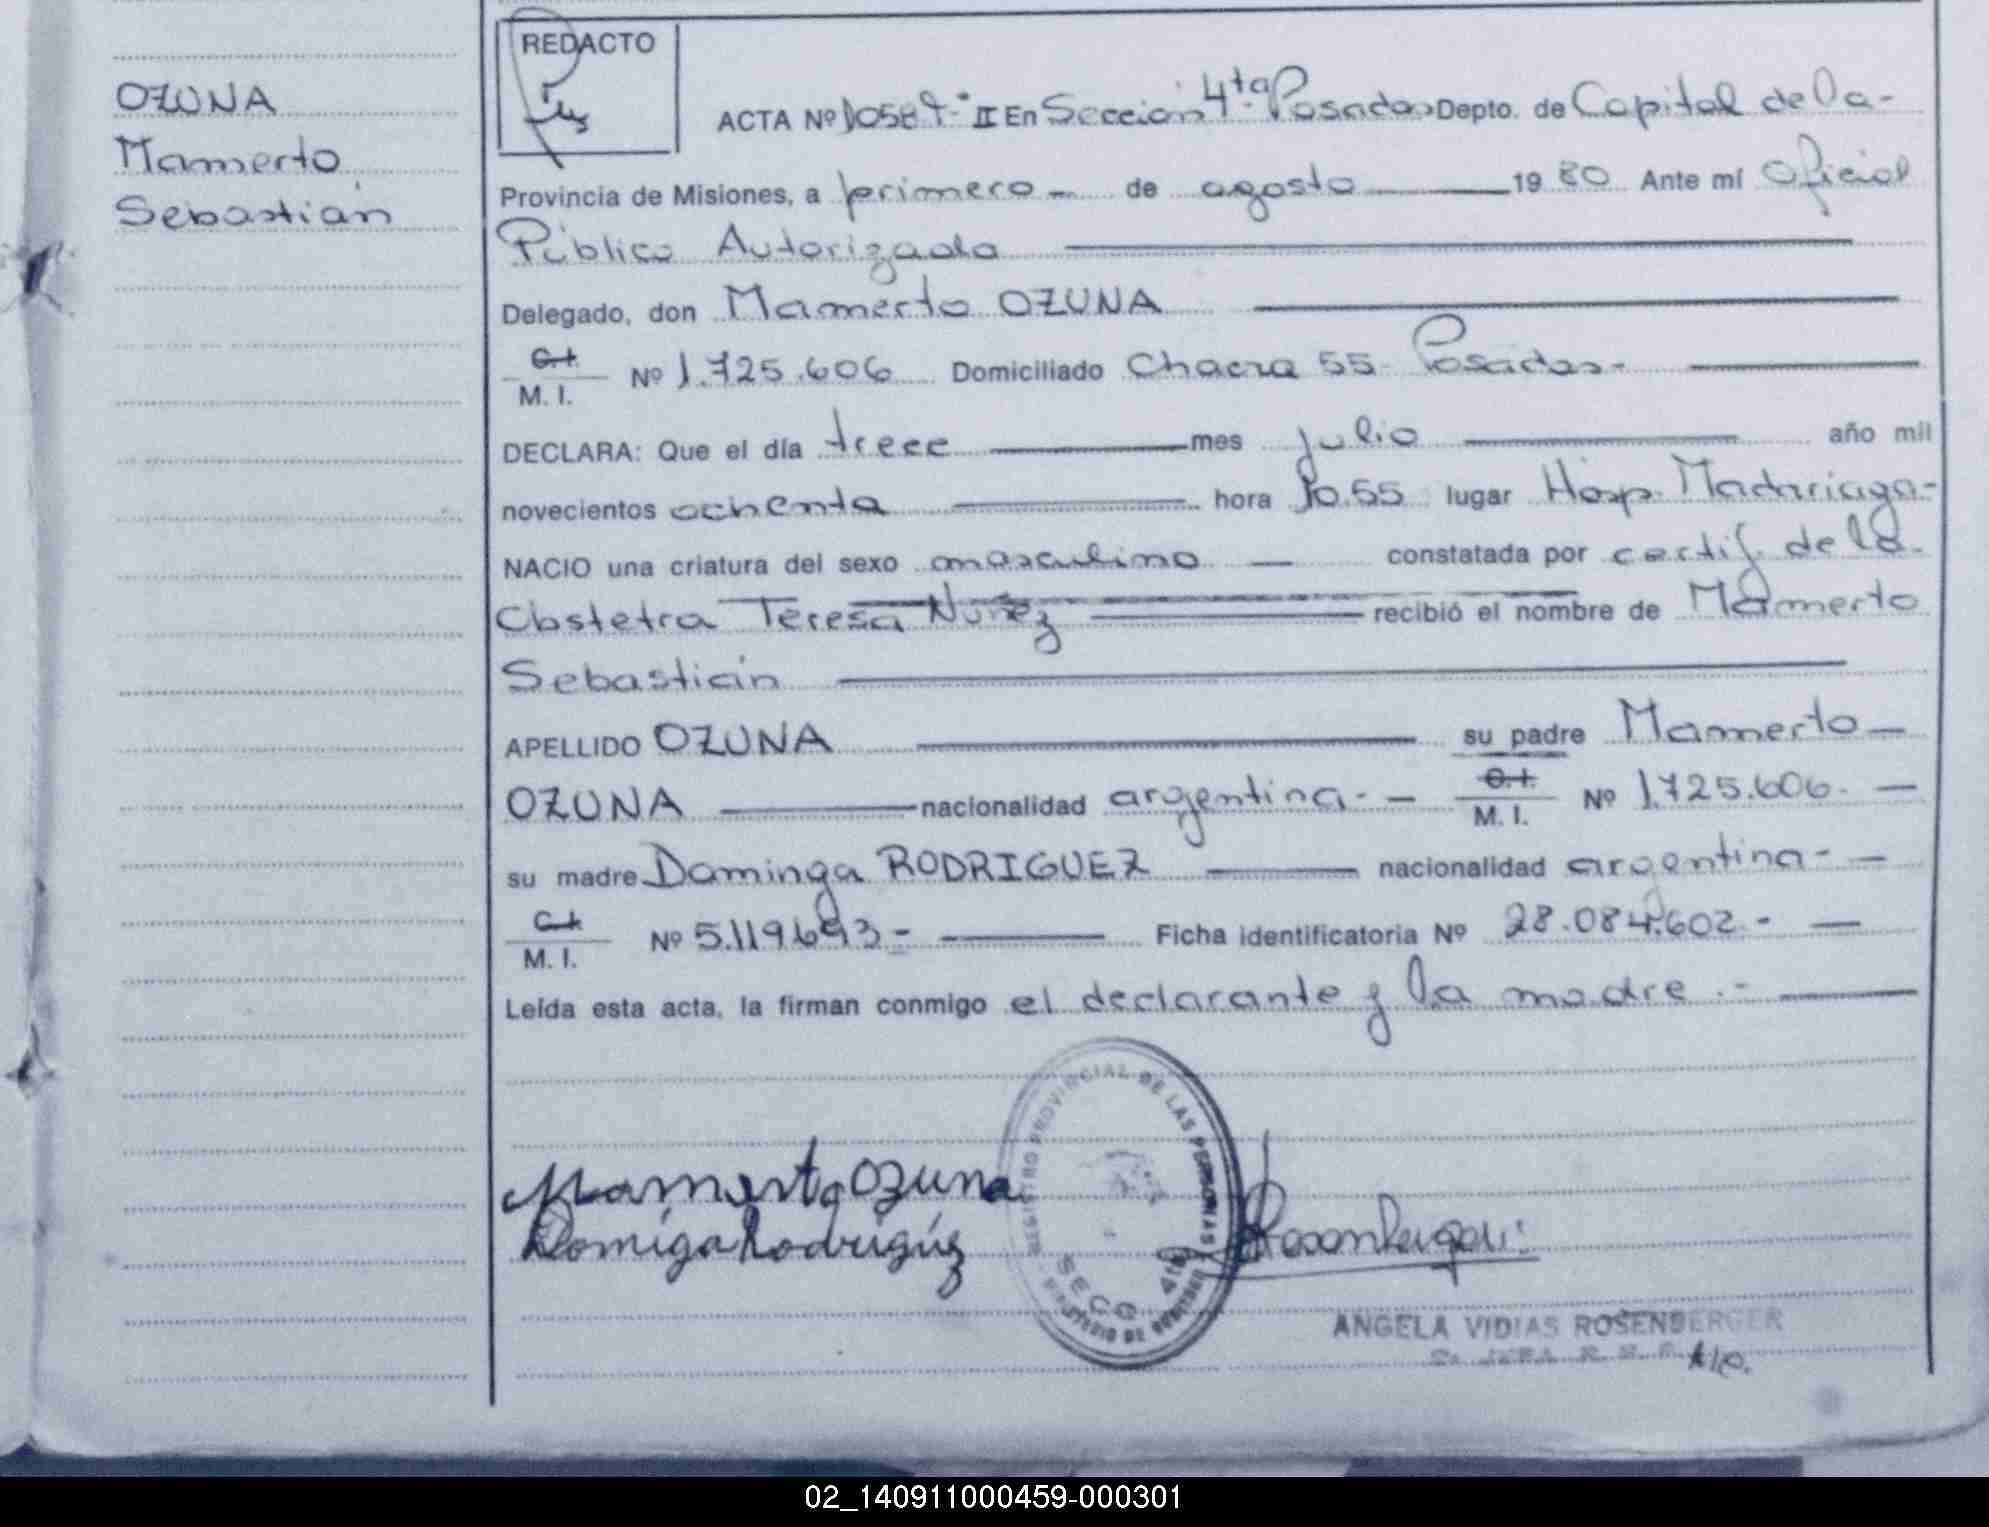 OZUNA
Mamerto
Sebastián
REDACTO
ACTA Nº 1058 - II En Sección 4ta Posadas Depto. de Capital de la-
Provincia de Misiones, a primero - de agosto 19 80 Ante mí Oficial
Público Autorizado
Delegado, don Mamerto OZUNA
C.I.
M. I. Nº 1.725.606 Domiciliado Chacra 55- Posadas-
DECLARA: Que el día trece mes julio año mil
novecientos ochenta hora 10.55 lugar Hosp. Madariaga-
NACIO una criatura del sexo masculino constatada por certif. de la
Obstetra Teresa Nuñez recibió el nombre de Mamerto
Sebastián
APELLIDO OZUNA su padre Mamerto
OZUNA nacionalidad argentina- C.I.
M. I. Nº 1.725.606.
su madre Dominga RODRIGUEZ nacionalidad argentina-
C.I.
M. I. Nº 5.119.693- Ficha identificatoria Nº 28.084.602.-
Leída esta acta, la firman conmigo el declarante y la madre.-
REGISTRO PROVINCIAL DE LAS PERSONAS
SECC. 4ta
MINISTERIO DE GOBIERNO
Mamerto Ozuna
Domiga Rodriguez
Rosenberger
ANGELA VIDIAS ROSENBERGER
02_140911000459-000301